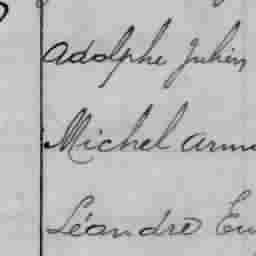 Adolphe Julien
Michel
Léandre